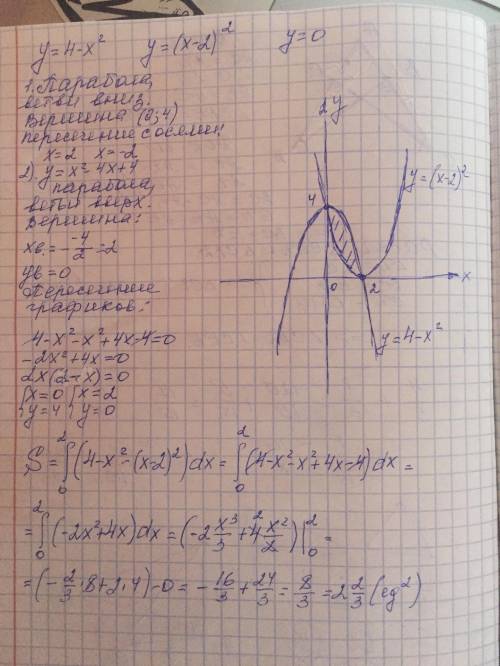 y=4-x²   y=(x-2)²   y=0
1. Парабола,
ветви вниз.
Вершина (0;4)
пересечение с осями:
x=2   x=-2
2) y=x²-4x+4
парабола,
ветви вверх.
Вершина:
xв.=-\frac{-4}{2}=2
yв=0
Пересечение
графиков:
4-x²-x²+4x-4=0
-2x²+4x=0
2x(2-x)=0
{x=0 {x=2
{y=4 {y=0
y
4
y=(x-2)²
0   2   x
y=4-x²
S=∫₀²(4-x²-(x-2)²)dx=∫₀²(4-x²-x²+4x-4)dx=
=∫₀²(-2x²+4x)dx=(-2\frac{x³}{3}+4\frac{x²}{2})|₀²=
=(-\frac{2}{3}·8+2·4)-0=-\frac{16}{3}+\frac{24}{3}=\frac{8}{3}=2\frac{2}{3}(ед²)